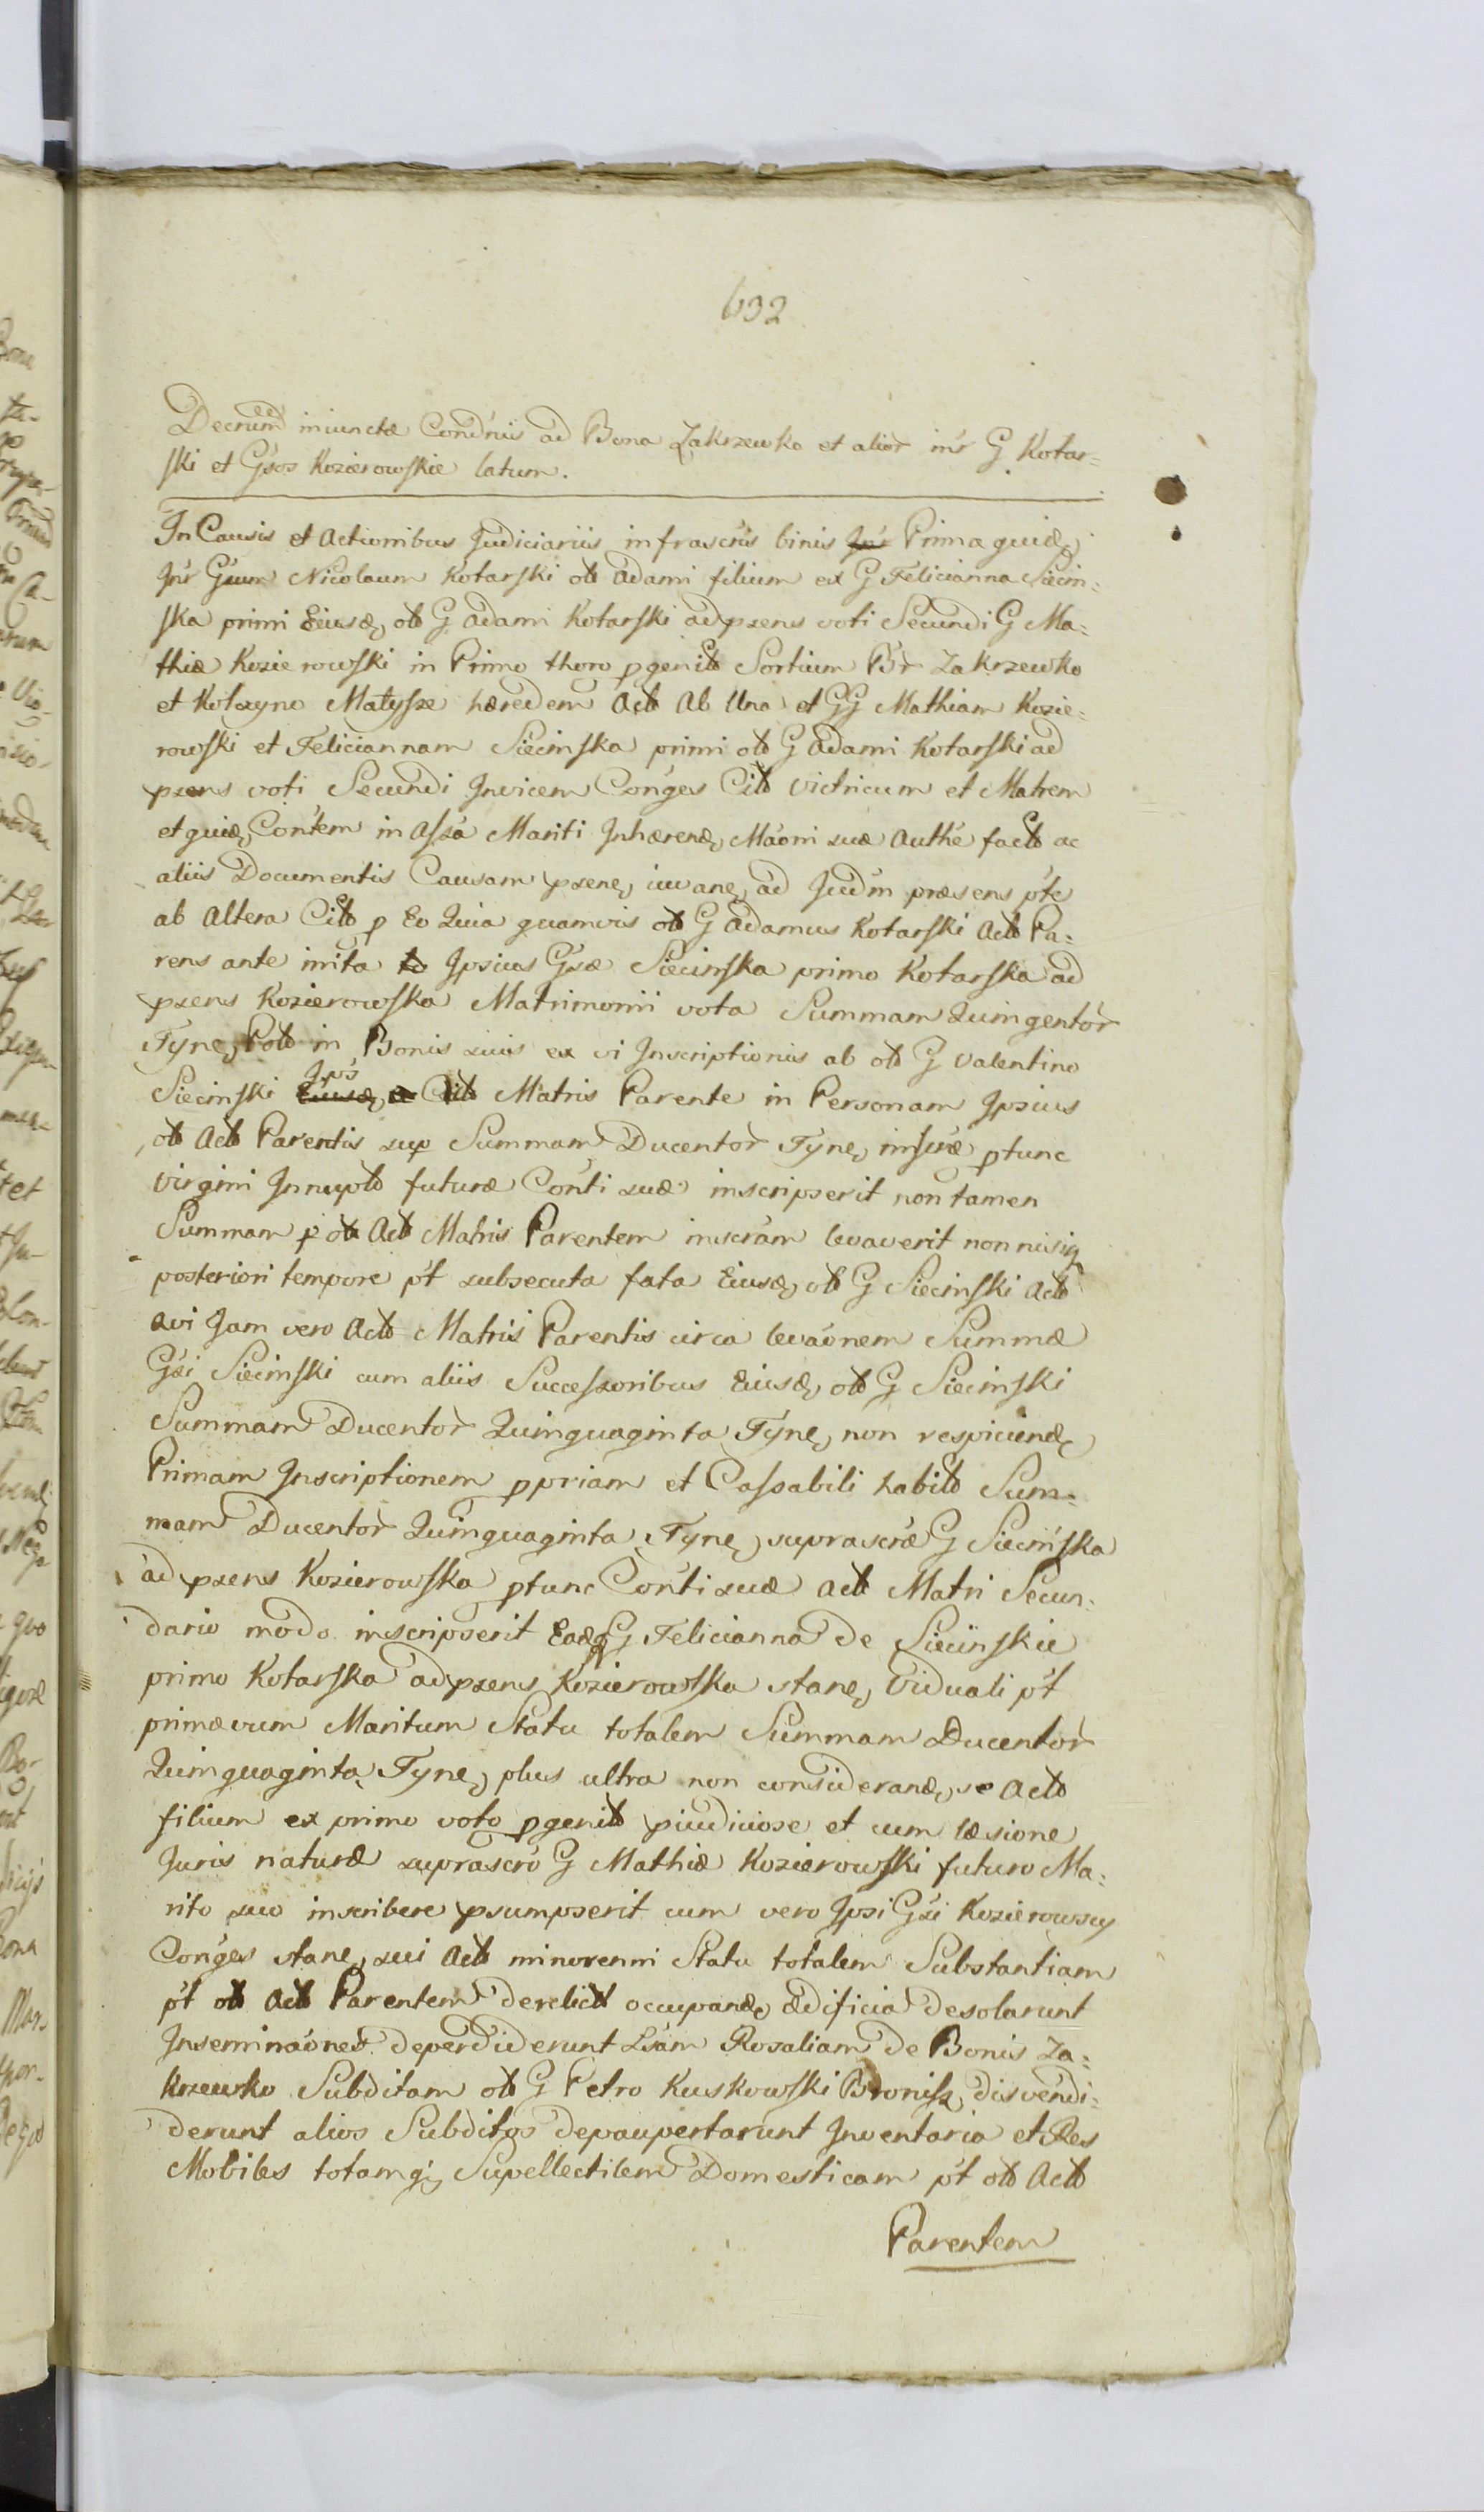 632
Decrum iniunctæ Condnis ad Bona Zakrzewko et alior inr G Kotar=
ski et Gsos Kozierowskie latum.
In Causis et Actionibus Judiciariis infrascris binis Prima quidę
Inr Gsum Nicolaum Kotarski olt Adami filium ex G Felicianna Siecin=
ska primi Eiusdę olt G Adami Kotarski ad psens voti Secundi G Ma=
thiæ Kozierowski in Primo thoro pgenit Sortium Br Zakrzewko
et Kotaxyno Matysse hæredem Act Ab Una et GG Mathiam Kozie=
rowski et Feliciannam Siecinska primi olt G Adami Kotarski ad
psens voti Secundi Invicem Conges Cit victricum et Matrem
et quidę Contem in Assa Mariti Inhærendę Maoni suæ Authe fact ac
aliis Documentis Causam psenę iuuanę ad Judm præsens pte
ab Altera Cit p Eo Quia quamvis olt G Adamus Kotarski Act Pa=
rens ante inita Ipsius Gsæ Siecinska primo Kotarska ad
psens Kozierowska Matrimonii vota Summam Quingentor
Tynę Polt in Bonis suis ex vi Inscriptionis ab olt G Valentino
Siecinski Ips Cit Matris Parente in Personam Ipsius
olt Act Parentis sup Summam Ducentor Tynę inscræ ptunc
Virgini Innupt futuræ Conti suæ inscripserit non tamen
Summam p olt Act Matris Parentem inscram levaverit non nisi
posteriori tempore pt subsecuta fata Eiusdę olt G Siecinski Act
Avi Jam vero Act Matris Parentis circa levaonem Summæ
Gsi Siecinski cum aliis Successoribus Eiusdę olt G Siecinski
Summam Ducentor Quinquaginta Tynę non respiciendę
Primam Inscriptionem ppriam et Cassabili habit Sum=
mam Ducentor Quinquaginta Tynę suprascræ G Siecinska
ad psens Kozierowska ptunc Conti suæ Act Matri Secun=
dario modo inscripserit Eadę G Felicianna de Siecinskie
primo Kotarska ad psens Kozierowska stanę Viduali pt
primævum Maritum Statu totalem Summam Ducentor
Quinquaginta Tynę plus ultra non considerandę se Act
filium ex primo voto pgenit piudiciose et cum læsione
Juris naturæ suprascro G Mathiæ Kozierowski futuro Ma=
rito suo inscribere psumpserit cum vero Ipsi Gsi Kozierowscy
Conges stanę sui Act minorenni Statu totalem Substantiam
pt olt Act Parentem derelict occupandę Ædificia desolarunt
Inseminaones deperdiderunt Lsam Rosaliam de Bonis Za=
krzewko Subditam olt G Petro Kuskowski disvendi=
derunt alios Subditos depaupertarunt Inventaria et Res
Mobiles totamq Supellectilem Domesticam pt olt Act
Parentem